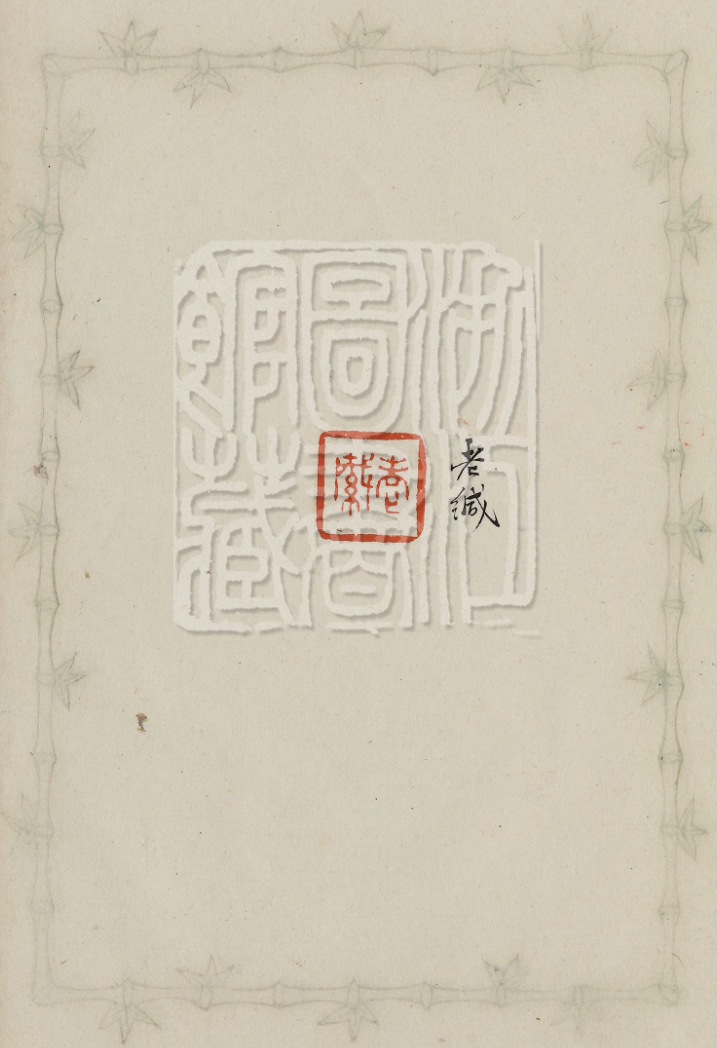 浙江
圖書
館藏
老緘